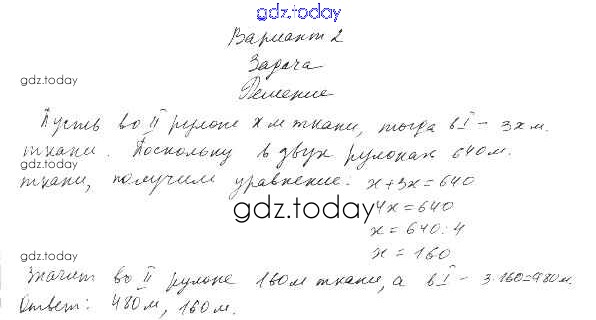 gdz.today
Вариант 2
Задача
gdz.today
Решение
Пусть во II рулоне x м ткани, тогда в I - 3x м.
ткани. Поскольку в двух рулонах 640 м.
gdz.today
ткани, получим уравнение: x+3x=640
gdz.today
4x=640
x=640:4
gdz.today
x=160
Значит во II рулоне 160м ткани, а в I - 3·160=480м.
Ответ: 480м, 160м.